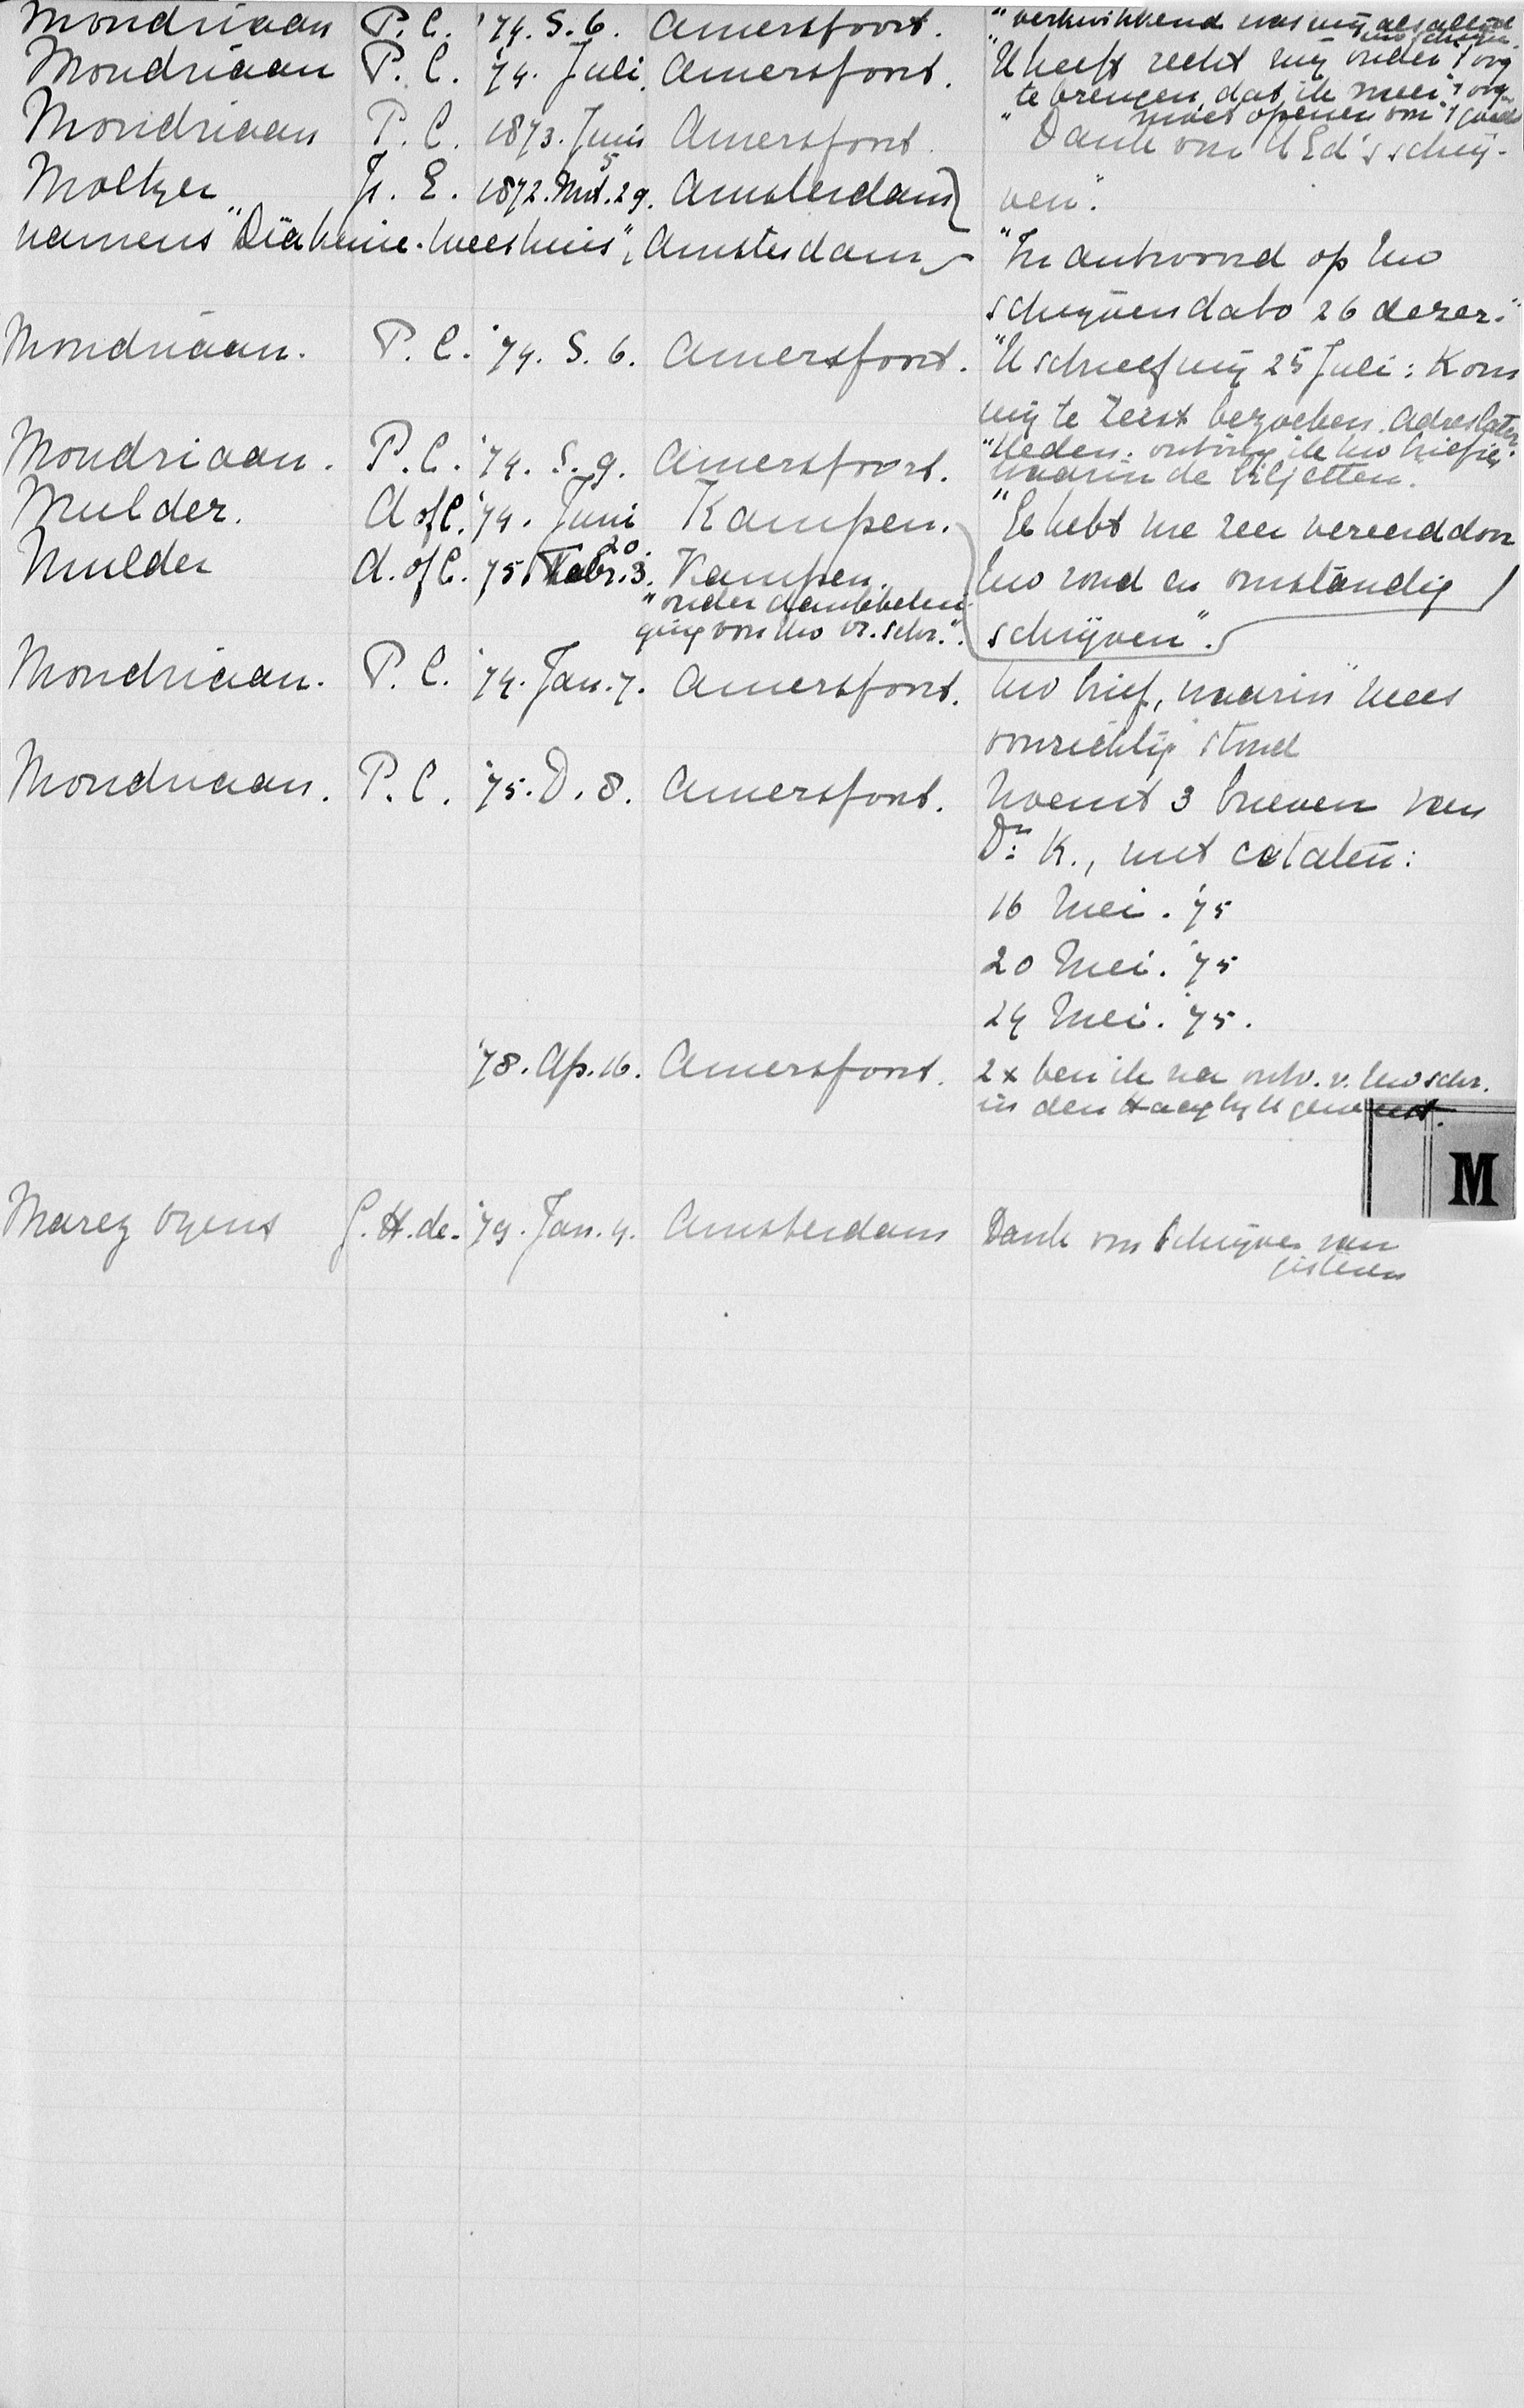 Mondriaan P. C. '74. S. 6. Amersfoort. "verkwikkend was mij als altijd
uw schrijven.
Mondriaan P. C. '74. Juli. Amersfoort. "U heeft recht mij onder 't oog
te brengen, dat ik meer 't oog
moet openen om 't goede
Mondriaan P. C. 1873. Juni 5 Amersfoort. "Dank om UEd's schrij-
Moltzer Jr. E. 1872. Mrt. 29. Amsterdam ven".
namens "Diakenie-Weeshuis", Amsterdam "In antwoord op Uw
schrijven dato 26 dezer."
Mondriaan. P. C. '74. S. 6. Amersfoort. "U schreef mij 25 Juli: Kom
mij te Zeist bezoeken. Adres later
Mondriaan. P. C. '74. S. 9. Amersfoort. "Heden ontving ik Uw briefje,
waarin de biljetten.
Mulder. A of C. '74. Juni 20. Kampen. "Ge hebt me zeer vereerd door
Mulder A. of C. '75. Febr. 3. Kampen. Uw rond en omstandig
"onder dankbetui-
ging voor Uw vr. schr.". schrijven".
Mondriaan. P. C. '74. Jan. 7. Amersfoort. Uw brief, waarin "wees
voorzichtig" stond
Mondriaan. P. C. '75. D. 8. Amersfoort. Noemt 3 brieven van
Dr. K., met datate:
16 Mei. '75
20 Mei. '75
24 Mei. '75.
'78. Ap. 16. Amersfoort. 2x ben ik na ontv. v. Uw schr.
in den Haag bij U geweest.
M
Marez Oyens G. H. de- '79. Jan. 4. Amsterdam Dank om Schrijven van
gisteren